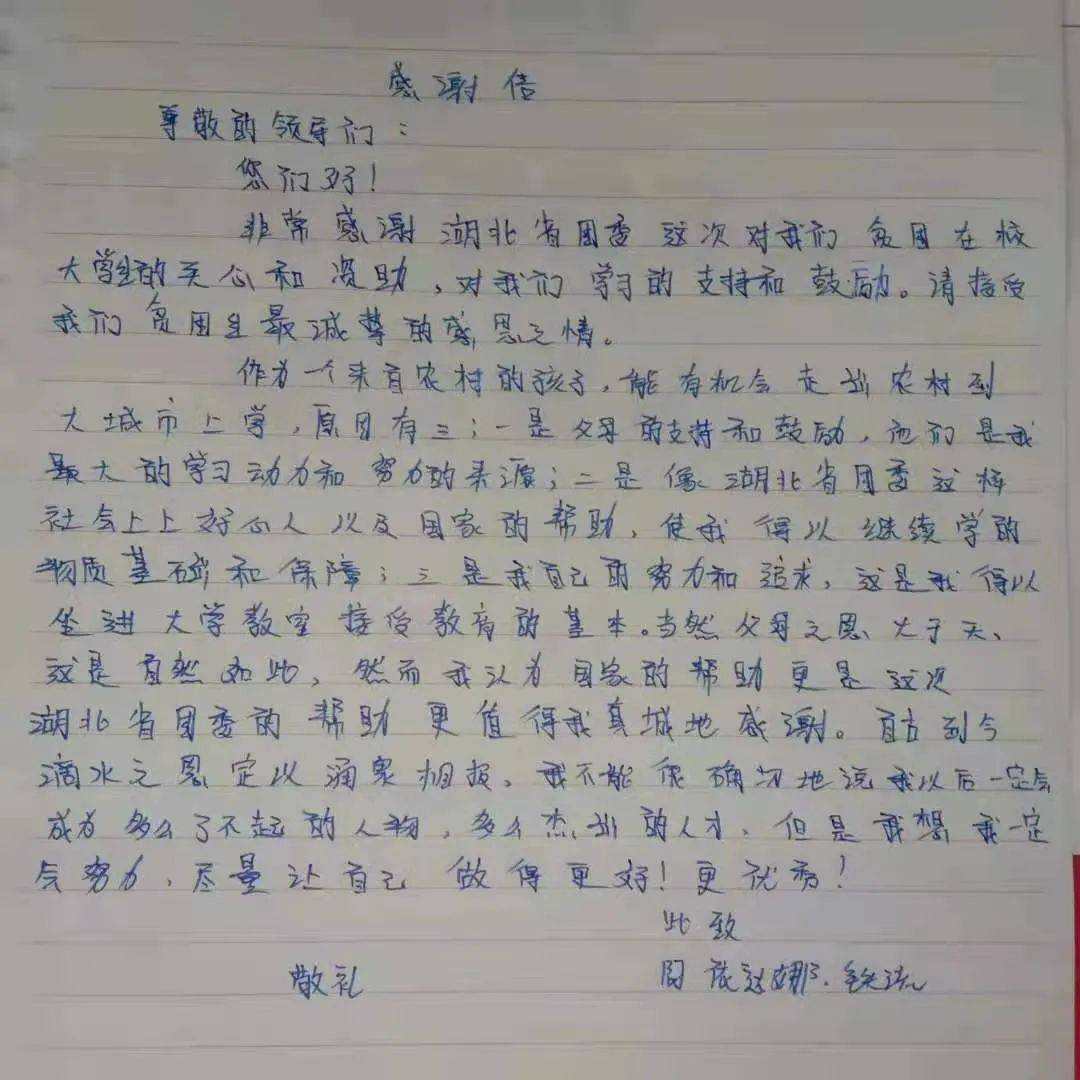 感谢信
尊敬的领导们：
您们好！
非常感谢湖北省团委这次对我们贫困在校
大学生的关心和资助，对我们学习的支持和鼓励。请接受
我们贫困生最诚挚的感恩之情。
作为一个来自农村的孩子，能有机会走出农村到
大城市上学，原因有三：一是父母的支持和鼓励，他们是我
最大的学习动力和努力的来源；二是像湖北省团委这样
社会上上好心人以及国家的帮助，使我得以继续学的
物质基础和保障；三是我自己的努力和追求，这是我得以
坐进大学教室接受教育的基本。当然父母之恩大于天、
这是自然如此，然而我认为国家的帮助更是这次
湖北省团委的帮助更值得我真城地感谢。自古到今
滴水之恩定以涌泉相报。我不能很确切地说我以后一定会
成为多么了不起的人物，多么杰出的人才，但是我想我一定
会努力，尽量让自己做得更好！更优秀！
此致
敬礼